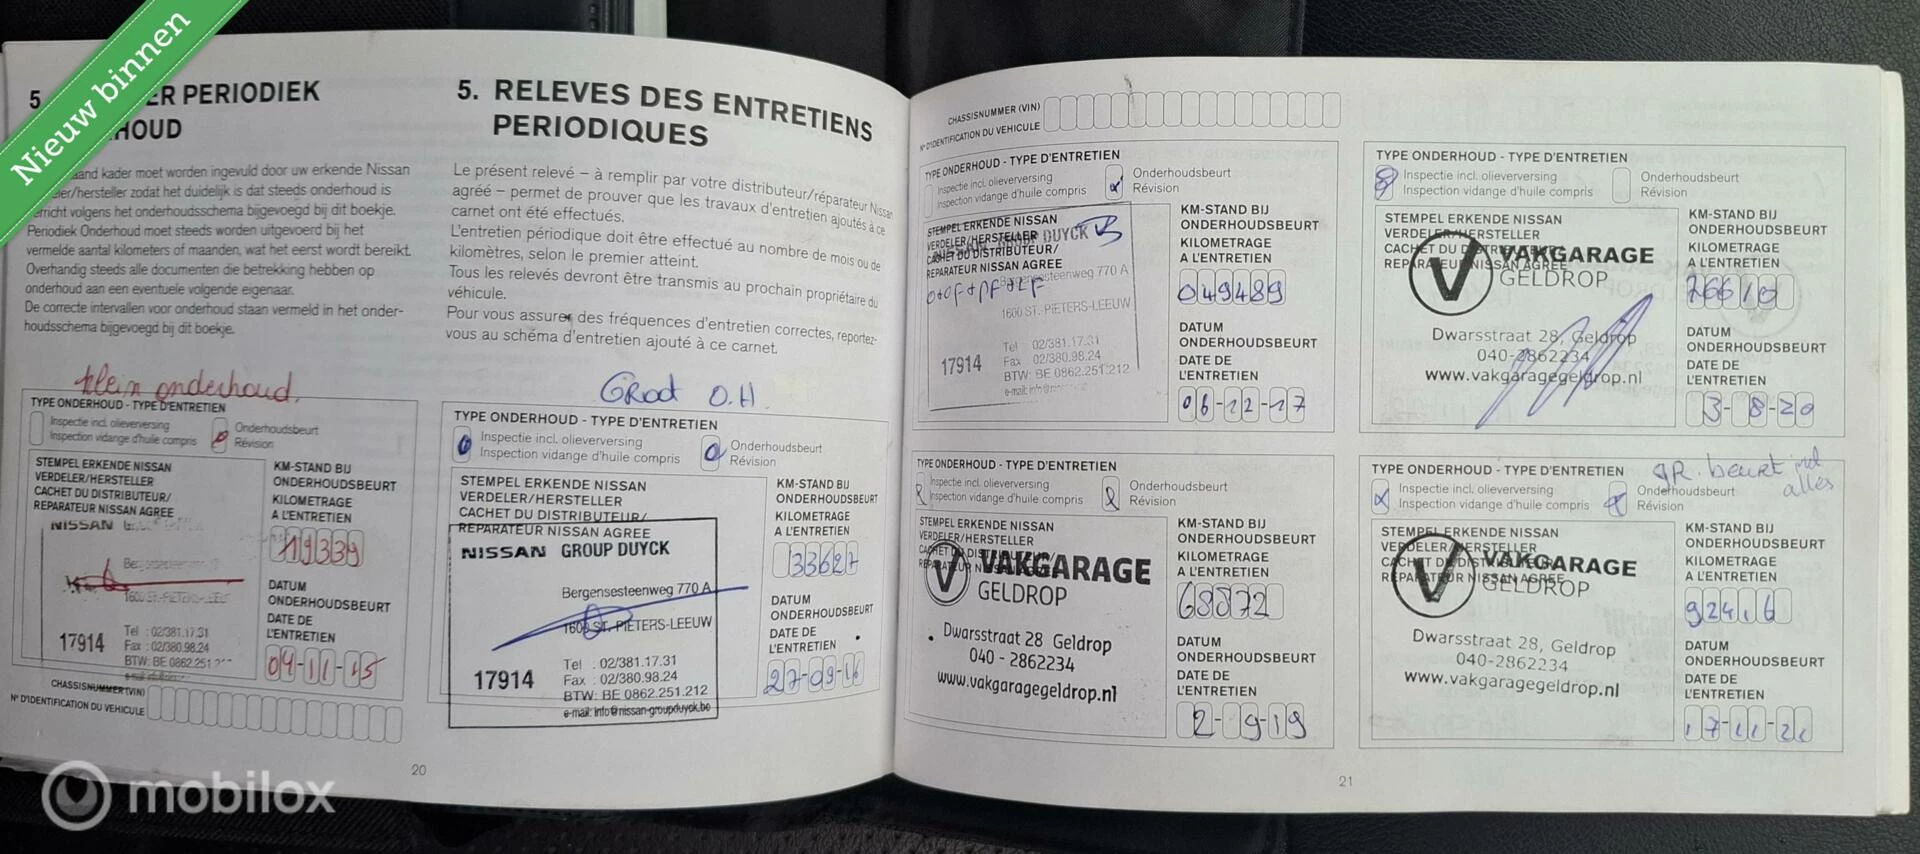 Nieuw binnen
5
ER PERIODIEK
HOUD
and kader moet worden ingevuld door uw erkende Nissan
eler/hersteller zodat het duidelijk is dat steeds onderhoud is
erricht volgens het onderhoudsschema bijgevoegd bij dit boekje.
Periodiek Onderhoud moet steeds worden uitgevoerd bij het
vermelde aantal kilometers of maanden, wat het eerst wordt bereikt.
Overhandig steeds alle documenten die betrekking hebben op
onderhoud aan een eventuele volgende eigenaar.
De correcte intervallen voor onderhoud staan vermeld in het onder-
houdsschema bijgevoegd bij dit boekje.
klein onderhoud.
TYPE ONDERHOUD - TYPE D'ENTRETIEN
Inspectie incl. olieverversing
Inspection vidange d'huile compris
Onderhoudsbeurt
Révision
STEMPEL ERKENDE NISSAN
VERDELER/HERSTELLER
CACHET DU DISTRIBUTEUR/
REPARATEUR NISSAN AGREE
NISSAN
1600 ST.-PIETERS-LEEUW
17914
Tel : 02/381.17.31
Fax : 02/380.98.24
BTW: BE 0862.251
KM-STAND BIJ
ONDERHOUDSBEURT
KILOMETRAGE
A L'ENTRETIEN
19339
DATUM
ONDERHOUDSBEURT
DATE DE
L'ENTRETIEN
04-11-15
CHASSISNUMMER (VIN)
N° D'IDENTIFICATION DU VEHICULE
5. RELEVES DES ENTRETIENS
PERIODIQUES
Le présent relevé – à remplir par votre distributeur/réparateur Nissan
agréé – permet de prouver que les travaux d'entretien ajoutés à ce
carnet ont été effectués.
L'entretien périodique doit être effectué au nombre de mois ou de
kilomètres, selon le premier atteint.
Tous les relevés devront être transmis au prochain propriétaire du
véhicule.
Pour vous assurer des fréquences d'entretien correctes, reportez-
vous au schéma d'entretien ajouté à ce carnet.
Groot O.H.
TYPE ONDERHOUD - TYPE D'ENTRETIEN
Inspectie incl. olieverversing
Inspection vidange d'huile compris
Onderhoudsbeurt
Révision
STEMPEL ERKENDE NISSAN
VERDELER/HERSTELLER
CACHET DU DISTRIBUTEUR/
REPARATEUR NISSAN AGREE
NISSAN GROUP DUYCK
Bergensesteenweg 770 A
1600 ST.-PIETERS-LEEUW
17914
Tel : 02/381.17.31
Fax : 02/380.98.24
BTW: BE 0862.251.212
e-mail: info@nissan-groupduyck.be
KM-STAND BIJ
ONDERHOUDSBEURT
KILOMETRAGE
A L'ENTRETIEN
33627
DATUM
ONDERHOUDSBEURT
DATE DE
L'ENTRETIEN
27-09-16
20
CHASSISNUMMER (VIN)
N° D'IDENTIFICATION DU VEHICULE
TYPE ONDERHOUD - TYPE D'ENTRETIEN
Inspectie incl. olieverversing
Inspection vidange d'huile compris
Onderhoudsbeurt
Révision
STEMPEL ERKENDE NISSAN
VERDELER/HERSTELLER
CACHET DU DISTRIBUTEUR/
REPARATEUR NISSAN AGREE
DUYCK
Bergensesteenweg 770 A
1600 ST.-PIETERS-LEEUW
17914
Tel : 02/381.17.31
Fax : 02/380.98.24
BTW: BE 0862.251.212
KM-STAND BIJ
ONDERHOUDSBEURT
KILOMETRAGE
A L'ENTRETIEN
049489
DATUM
ONDERHOUDSBEURT
DATE DE
L'ENTRETIEN
06-12-17
TYPE ONDERHOUD - TYPE D'ENTRETIEN
Inspectie incl. olieverversing
Inspection vidange d'huile compris
Onderhoudsbeurt
Révision
STEMPEL ERKENDE NISSAN
VERDELER/HERSTELLER
CACHET DU DISTRIBUTEUR/
REPARATEUR NISSAN AGREE
VAKGARAGE
GELDROP
Dwarsstraat 28, Geldrop
040-2862234
www.vakgaragegeldrop.nl
KM-STAND BIJ
ONDERHOUDSBEURT
KILOMETRAGE
A L'ENTRETIEN
76610
DATUM
ONDERHOUDSBEURT
DATE DE
L'ENTRETIEN
3-8-20
TYPE ONDERHOUD - TYPE D'ENTRETIEN
Inspectie incl. olieverversing
Inspection vidange d'huile compris
Onderhoudsbeurt
Révision
STEMPEL ERKENDE NISSAN
VERDELER/HERSTELLER
CACHET DU DISTRIBUTEUR/
REPARATEUR NISSAN AGREE
VAKGARAGE
GELDROP
Dwarsstraat 28 Geldrop
040 - 2862234
www.vakgaragegeldrop.nl
KM-STAND BIJ
ONDERHOUDSBEURT
KILOMETRAGE
A L'ENTRETIEN
68572
DATUM
ONDERHOUDSBEURT
DATE DE
L'ENTRETIEN
2-9-19
gR. beurt incl
alles
TYPE ONDERHOUD - TYPE D'ENTRETIEN
Inspectie incl. olieverversing
Inspection vidange d'huile compris
Onderhoudsbeurt
Révision
STEMPEL ERKENDE NISSAN
VERDELER/HERSTELLER
CACHET DU DISTRIBUTEUR/
REPARATEUR NISSAN AGREE
VAKGARAGE
GELDROP
Dwarsstraat 28, Geldrop
040-2862234
www.vakgaragegeldrop.nl
KM-STAND BIJ
ONDERHOUDSBEURT
KILOMETRAGE
A L'ENTRETIEN
92416
DATUM
ONDERHOUDSBEURT
DATE DE
L'ENTRETIEN
17-11-21
21
mobilox